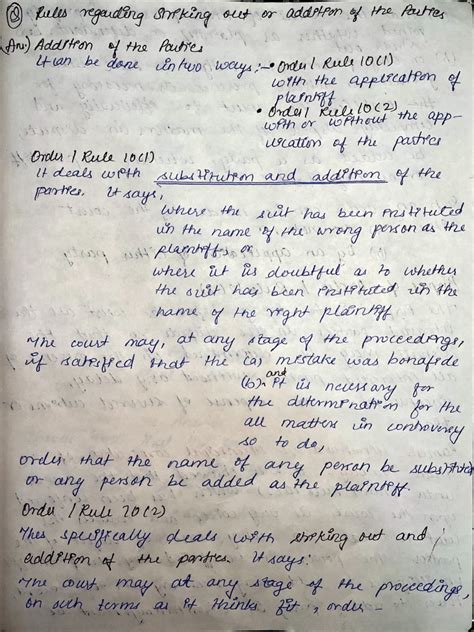 Q Rules regarding striking out or addition of the Parties
Ans) Addition of the Parties
It can be done in two ways:- • Order 1 Rule 10(1)
with the application of
plaintiff
• Order 1 Rule 10(2)
with or without the app-
lication of the parties
Order 1 Rule 10(1)
It deals with substitution and addition of the
parties. It says,
where the suit has been instituted
in the name of the wrong person as the
plaintiff or
where it is doubtful as to whether
the suit has been instituted in the
name of the right plaintiff
The court may, at any stage of the proceedings,
if satisfied that the (a) mistake was bonafide
and
(b) it is necessary for
the determination for the
all matters in controversy
so to do,
order that the name of any person be substitute
or any person be added as the plaintiff.
Order 1 Rule 10(2)
This specifically deals with striking out and
addition of the parties. It says:
The court may at any stage of the proceedings,
on such terms as it thinks fit, order -